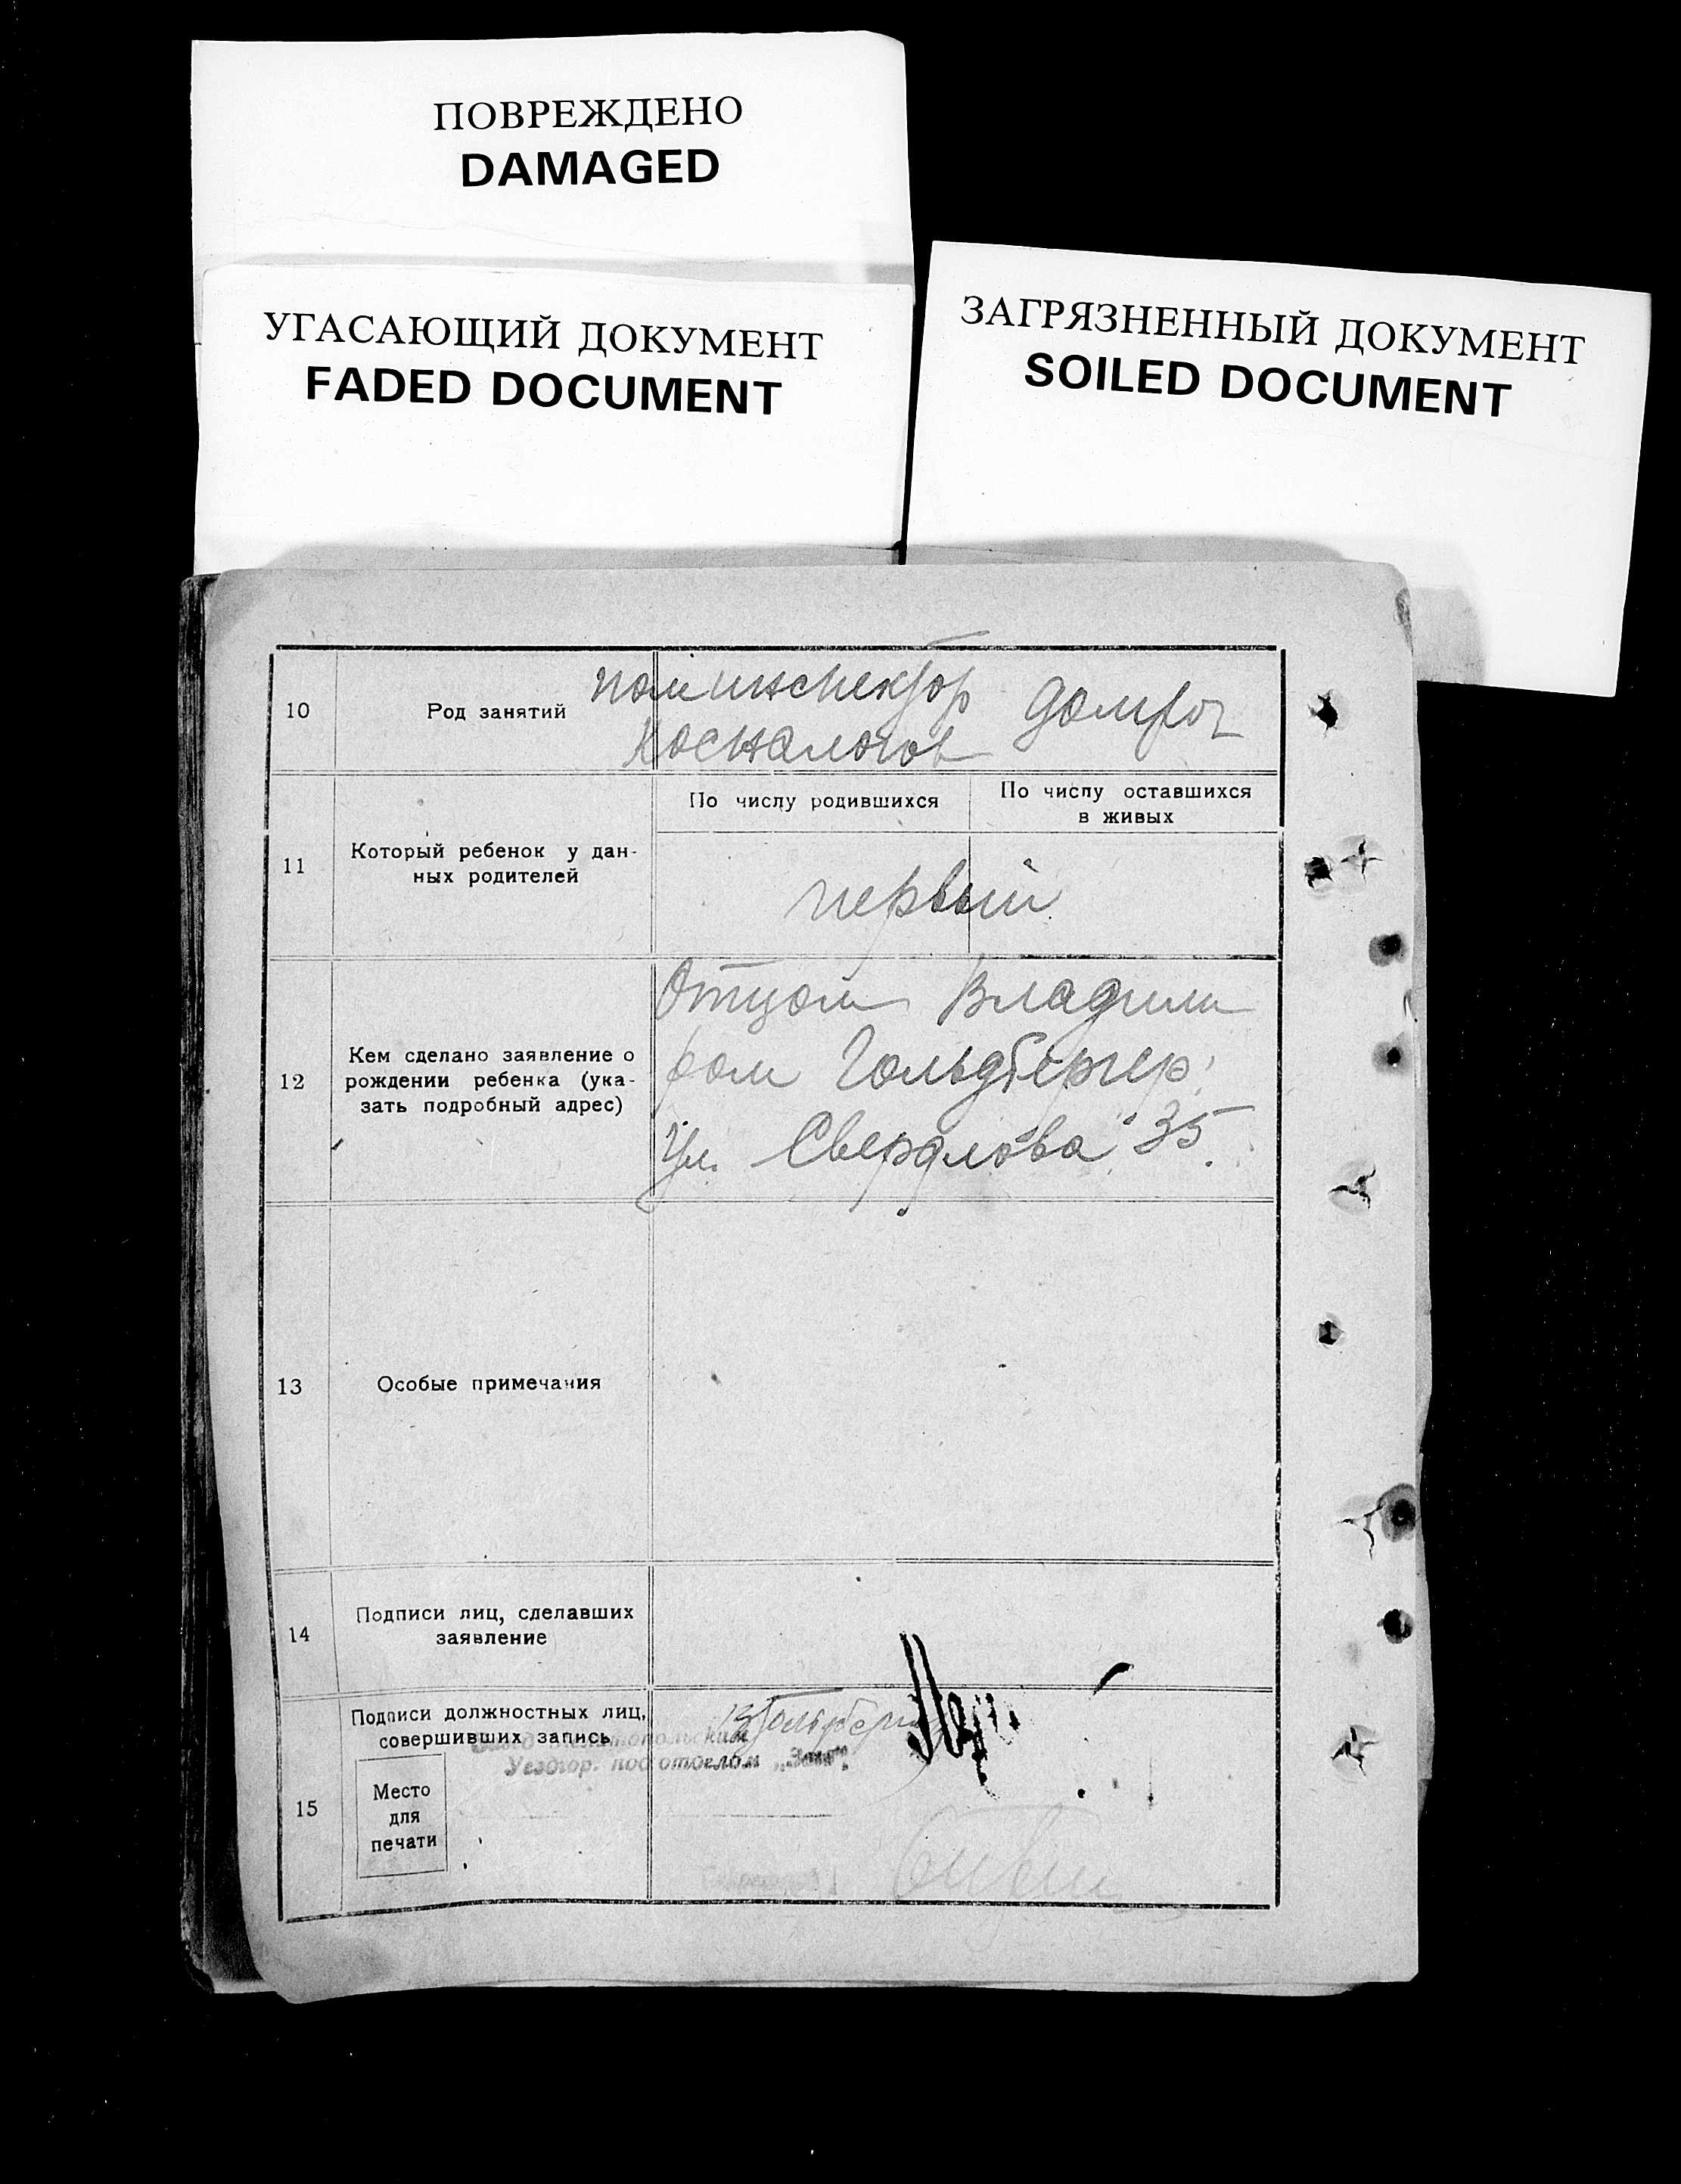 ПОВРЕЖДЕНО
DAMAGED
УГАСАЮЩИЙ ДОКУМЕНТ
FADED DOCUMENT
ЗАГРЯЗНЕННЫЙ ДОКУМЕНТ
SOILED DOCUMENT
10
Род занятий
поминспектор
Косналогов
11
Который ребенок у дан-
ных родителей
По числу родившихся
По числу оставшихся
в живых
первый
12
Кем сделано заявление о
рождении ребенка (ука-
зать подробный адрес)
Отцом Владими
ром Гольдбергер
Ул. Свердлова 35.
13
Особые примечания
14
Подписи лиц, сделавших
заявление
15
Подписи должностных лиц,
совершивших запись
Место
для
печати
Мелитопольским
Уездгор. подотделом „Загс".